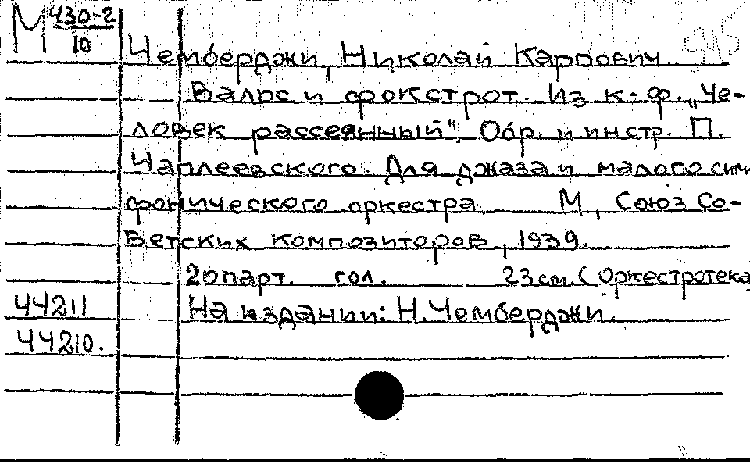 М 430-2
10
Чемберджи, Николай Карпович
Вальс и фокстрот. Из к-ф. „Че-
ловек рассеянный". Обр. и инстр. П.
Чаплеевского. Для джаза и малого сим
фонического оркестра. М, Союз Со-
ветских композиторов, 1939.
20 парт. гол. 23см. (Оркестротека
44211 На издании: Н. Чемберджи.
44210.